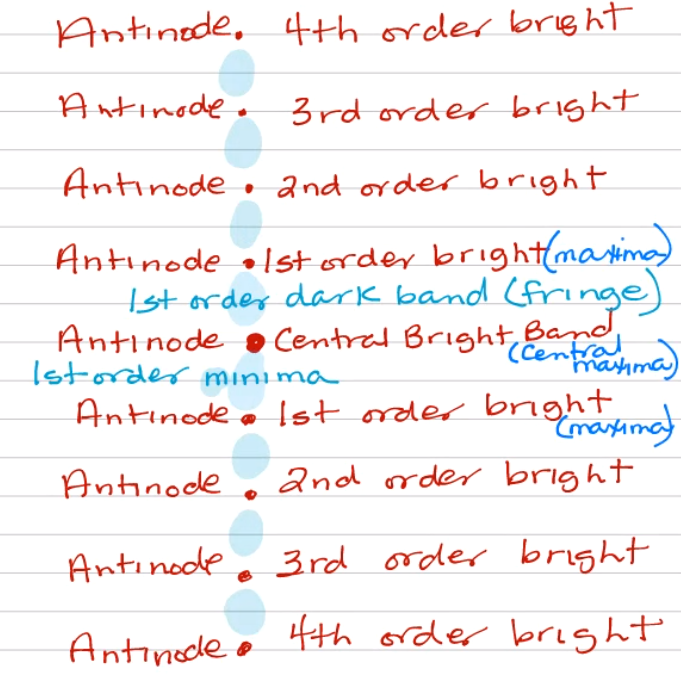 Antinode. 4th order bright
Antinode. 3rd order bright
Antinode. 2nd order bright
Antinode .1st order bright (maxima)
1st order dark band (fringe)
Antinode . Central Bright Band
(Central maxima)
1st order minima
Antinode. 1st order bright
(maxima)
Antinode . 2nd order bright
Antinode . 3rd order bright
Antinode . 4th order bright